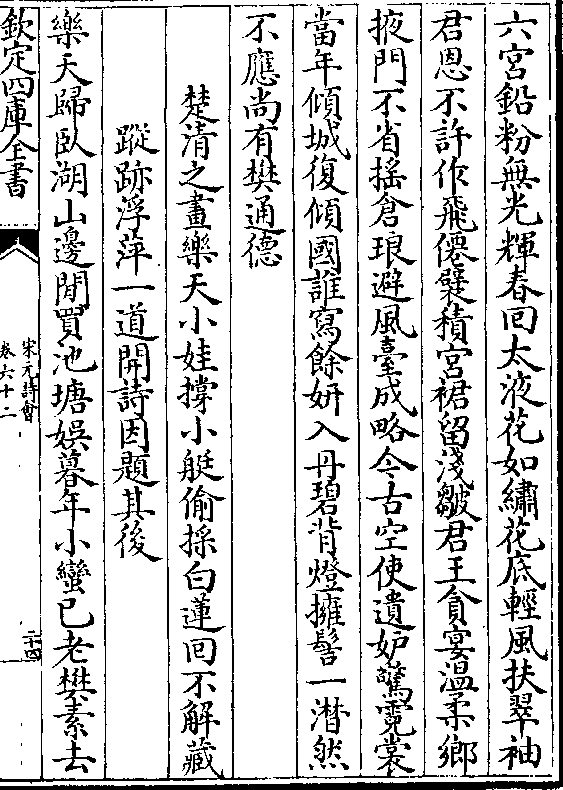 六宮鉛粉無光輝春回太液花如繡花底輕風扶翠袖
君恩不許作飛僊襞積宮裙留淺皺君王貪宴溫柔鄉
掖門不省揺倉琅避風臺成略今古空使遺妒驚霓裳
當年傾城復傾國誰寫餘妍入丹碧背燈擁髻一潸然
不應尚有樊通德
楚清之畫樂天小娃撐小艇偷採白蓮回不解藏
蹤跡浮萍一道開詩因題其後
樂天歸卧湖山邊閒買池塘娯暮年小蠻已老樊素去
欽定四庫全書
宋元詩會
卷六十二
二十四